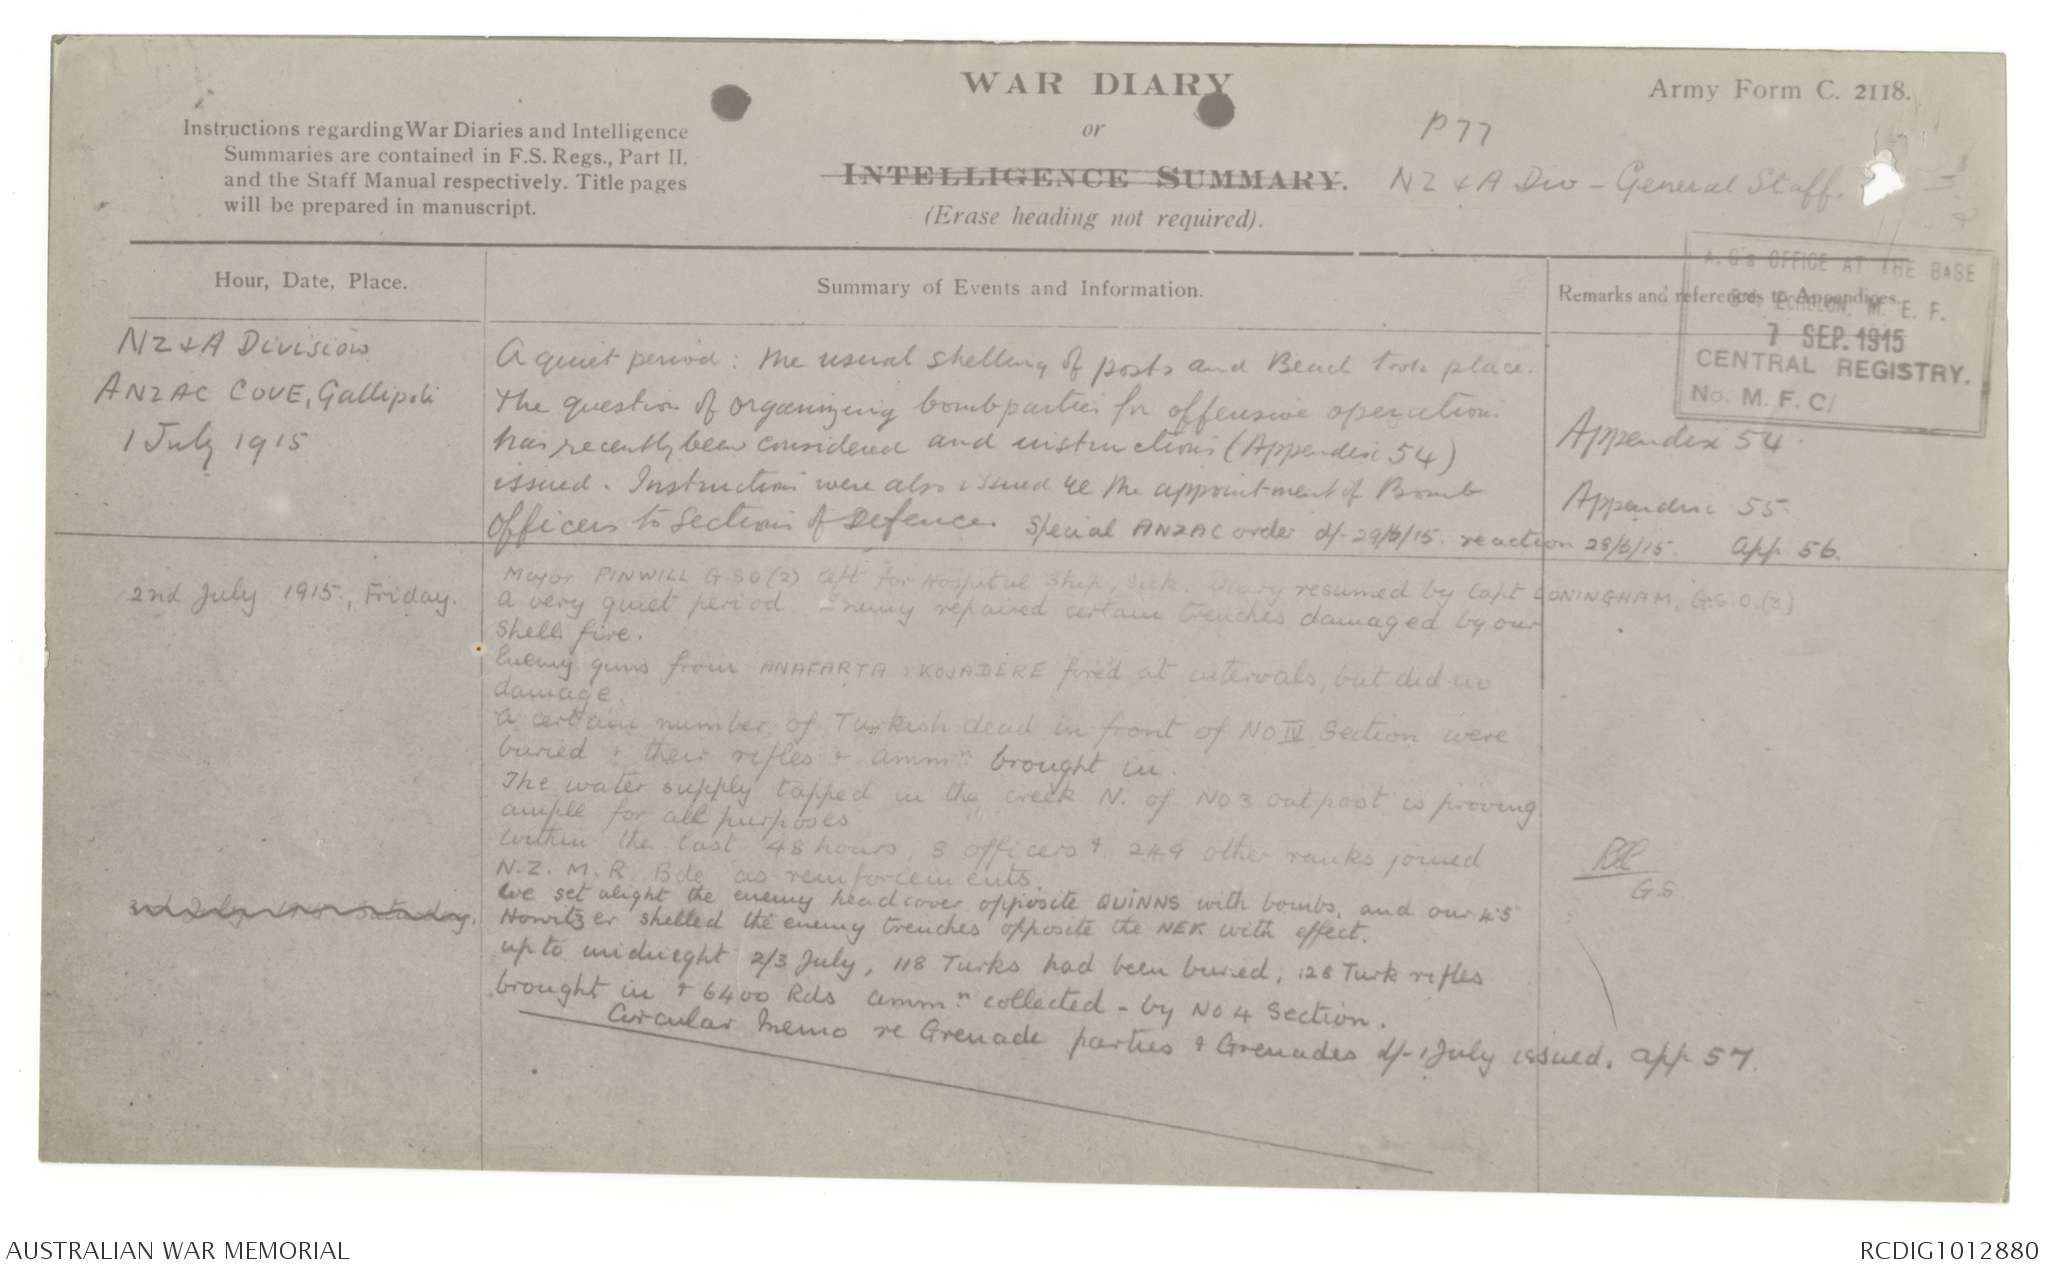 WAR DIARY
or
INTELLIGENCE SUMMARY.
(Erase heading not required).
Army Form C. 2118.
Instructions regarding War Diaries and Intelligence
Summaries are contained in F.S. Regs., Part II.
and the Staff Manual respectively. Title pages
will be prepared in manuscript.
P77
NZ & A Div - General Staff.
A. G's OFFICE AT THE BASE
ECHELON, M. E. F.
7 SEP. 1915
CENTRAL REGISTRY.
No. M. F. C/
Hour, Date, Place.
Summary of Events and Information.
Remarks and references to Appendices
NZ & A Division
ANZAC COVE, Gallipoli
1 July 1915
A quiet period: the usual shelling of posts and Beach took place.
The question of organizing bomb parties for offensive operations
has recently been considered and instructions (Appendix 54)
issued. Instructions were also issued re the appointment of Bomb
officers to Sections of Defence. Special ANZAC order d/- 29/6/15. re action 28/6/15. app 56.
Appendix 54.
Appendix 55.
2nd July 1915, Friday.
Major PINWILL GSO(2) left for Hospital Ship, sick. Diary resumed by Capt CONINGHAM, G.S.O.(2)
A very quiet period. Enemy repaired certain trenches damaged by our
shell fire.
Enemy guns from ANAFARTA & KOJADERE fired at intervals, but did no
damage.
A certain number of Turkish dead in front of No IV Section were
buried & their rifles & ammn. brought in.
The water supply tapped in the creek N. of No 3 outpost is proving
ample for all purposes
Within the last 48 hours, 8 officers & 249 other ranks joined
N.Z. M. R. Bde as reinforcements.
3rd July 1915 Saturday.
We set alight the enemy head cover opposite QUINNS with bombs, and our 4.5"
Howitzer shelled the enemy trenches opposite the NEK with effect.
up to midnight 2/3 July, 118 Turks had been buried, 128 Turk rifles
brought in & 6400 Rds ammn. collected - by No 4 Section.
Circular Memo re Grenade parties & Grenades d/- 1 July issued. app 57.
GS
AUSTRALIAN WAR MEMORIAL
RCDIG1012880